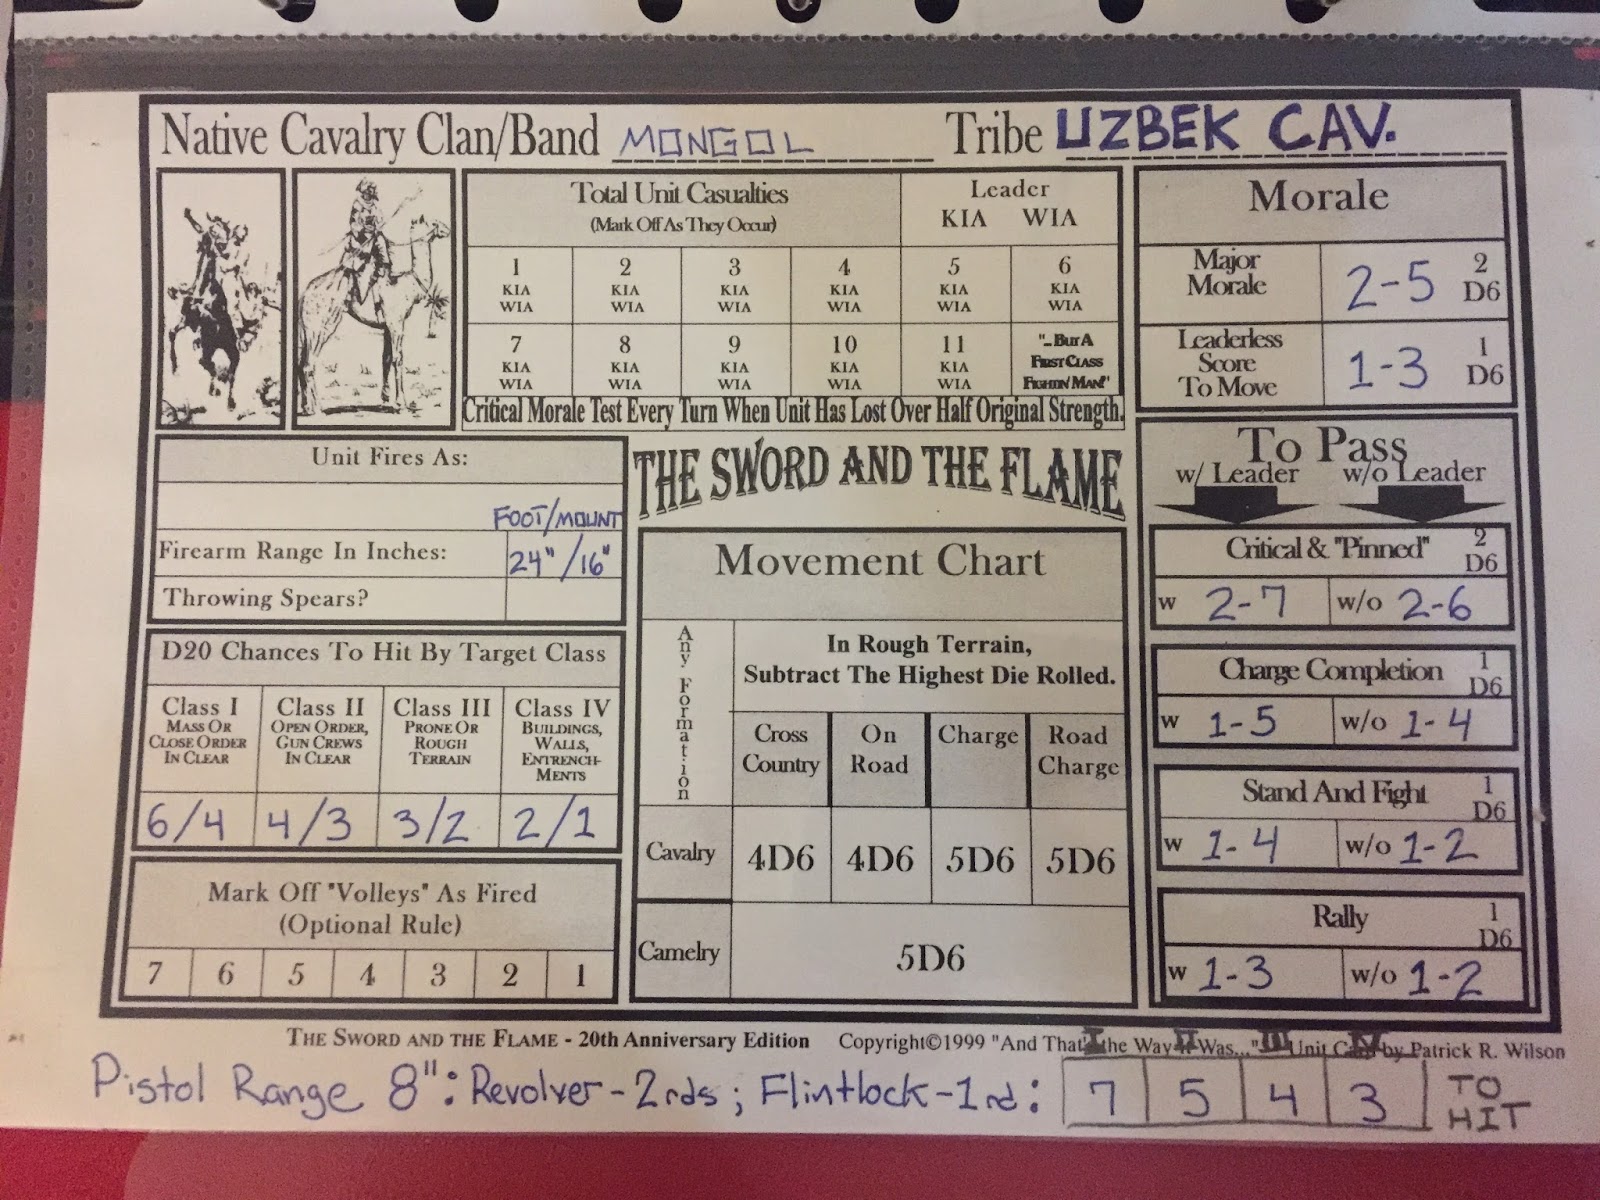 Native Cavalry Clan/Band MONGOL Tribe UZBEK CAV.
Total Unit Casualties
(Mark Off As They Occur)
Leader
KIA WIA
1 2 3 4 5 6
KIA KIA KIA KIA KIA KIA
WIA WIA WIA WIA WIA WIA
7 8 9 10 11
KIA KIA KIA KIA KIA
WIA WIA WIA WIA WIA
"...But A
First Class
Fightin' Man!"
Critical Morale Test Every Turn When Unit Has Lost Over Half Original Strength.
Morale
Major
Morale
2-5
2
D6
Leaderless
Score
To Move
1-3
1
D6
Unit Fires As:
FOOT/MOUNT
Firearm Range In Inches:
24"/16"
Throwing Spears?
D20 Chances To Hit By Target Class
Class I
Mass Or
Close Order
In Clear
6/4
Class II
Open Order,
Gun Crews
In Clear
4/3
Class III
Prone Or
Rough
Terrain
3/2
Class IV
Buildings,
Walls,
Entrench-
ments
2/1
Mark Off "Volleys" As Fired
(Optional Rule)
7 6 5 4 3 2 1
THE SWORD AND THE FLAME
Movement Chart
Any Formation
In Rough Terrain,
Subtract The Highest Die Rolled.
Cross
Country
On
Road
Charge
Road
Charge
Cavalry 4D6 4D6 5D6 5D6
Camelry 5D6
To Pass
w/ Leader w/o Leader
Critical & "Pinned"
2
D6
w 2-7 w/o 2-6
Charge Completion
1
D6
w 1-5 w/o 1-4
Stand And Fight
1
D6
w 1-4 w/o 1-2
Rally
1
D6
w 1-3 w/o 1-2
The Sword and the Flame - 20th Anniversary Edition Copyright©1999 "And That's the Way It Was..." Unit Card by Patrick R. Wilson
I II III IV
Pistol Range 8": Revolver-2rds; Flintlock-1rd: 7 5 4 3 TO
HIT